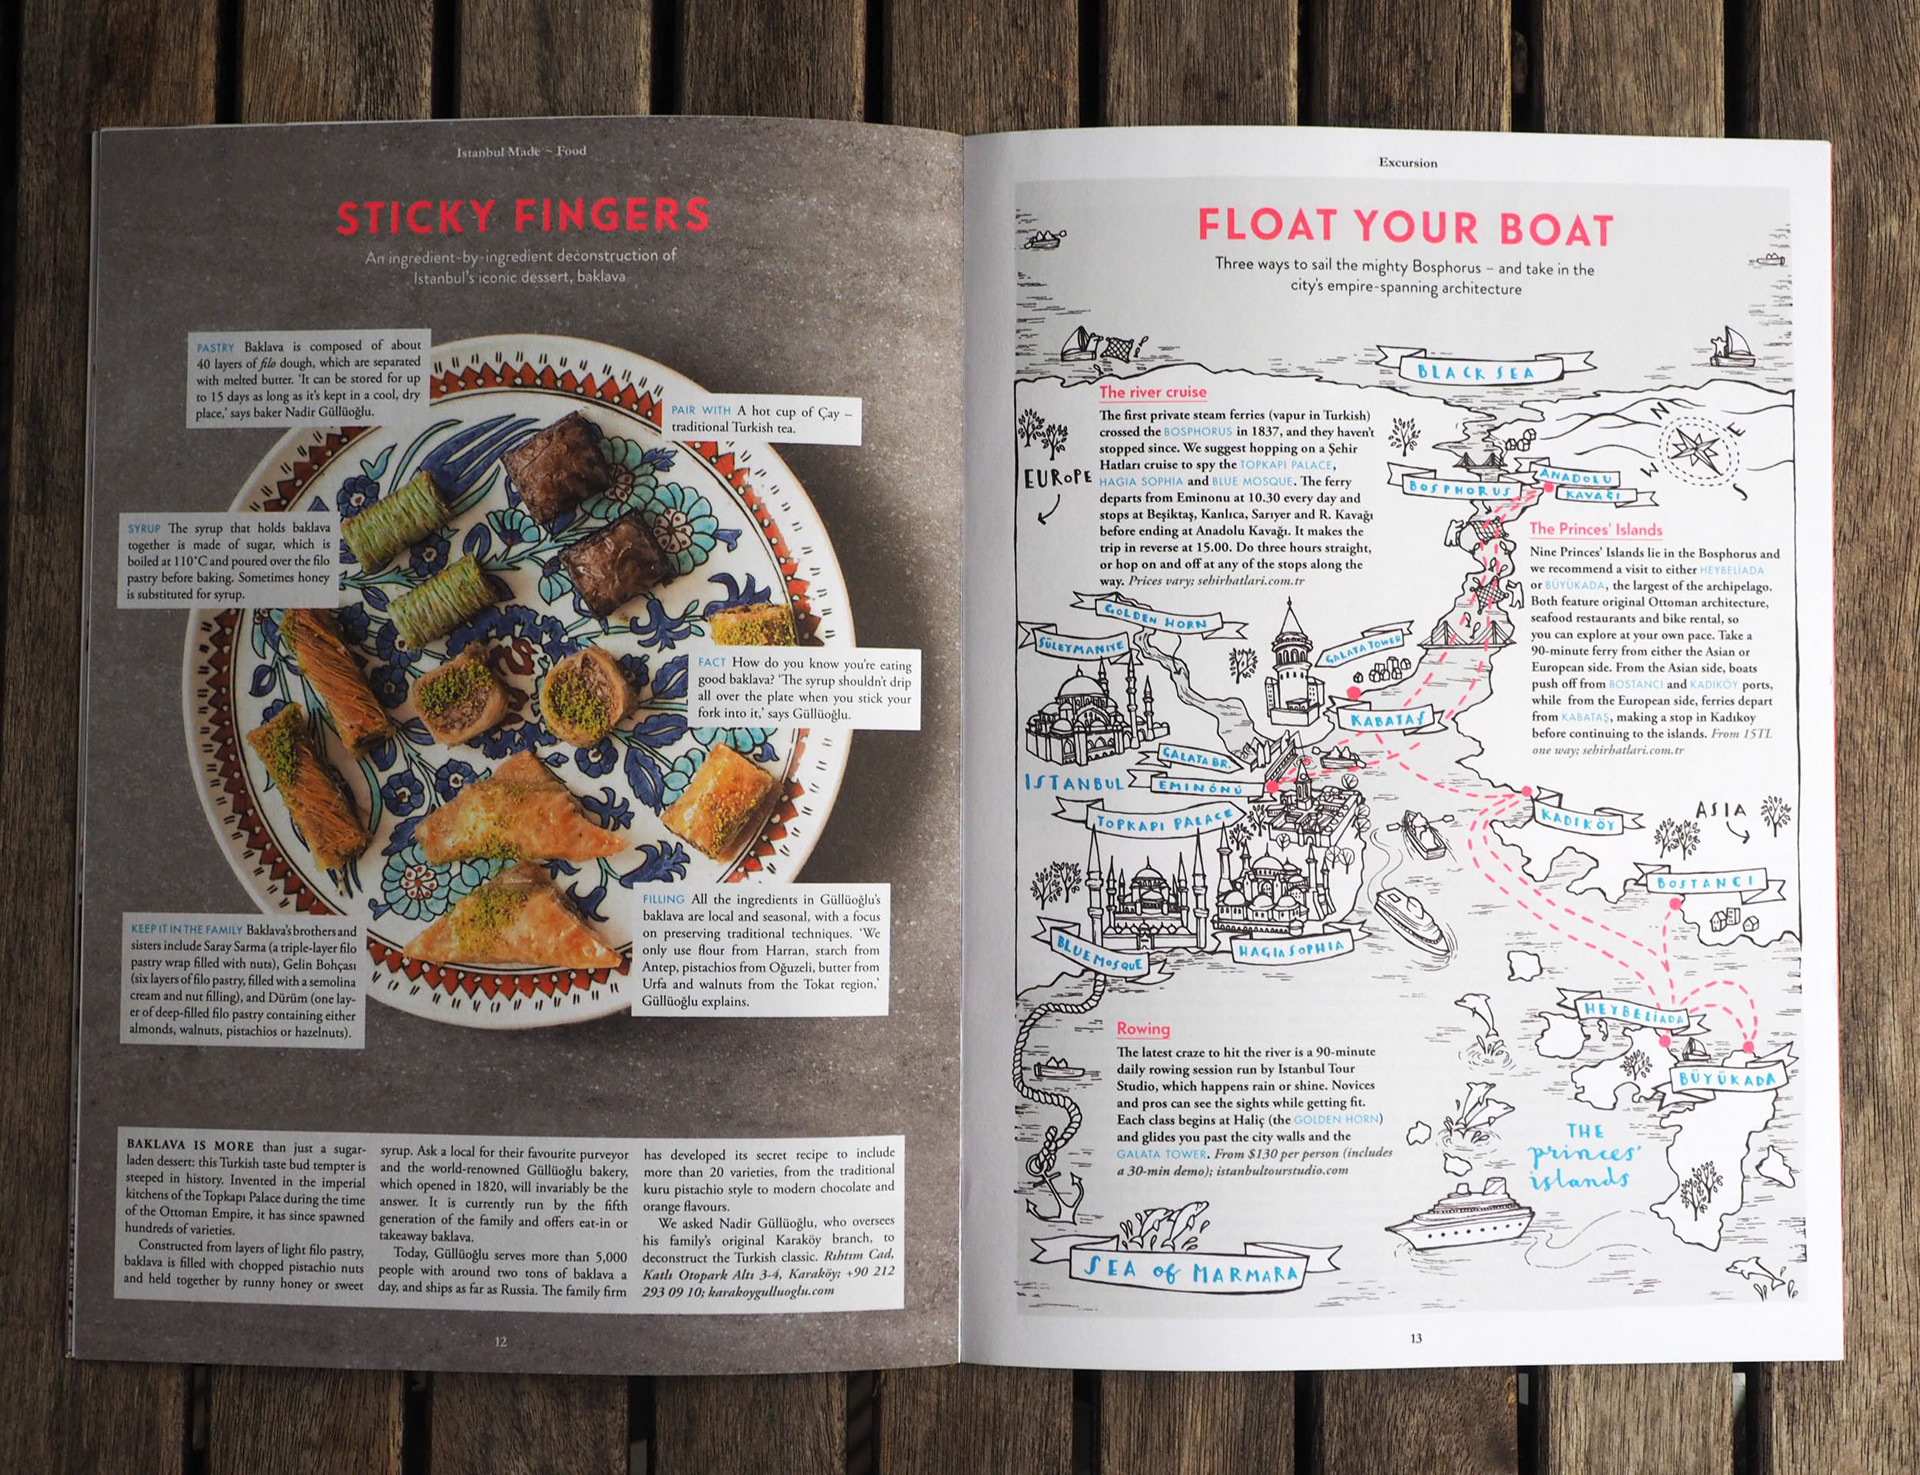 Istanbul Made ~ Food
STICKY FINGERS
An ingredient-by-ingredient deconstruction of
Istanbul's iconic dessert, baklava
PASTRY Baklava is composed of about
40 layers of filo dough, which are separated
with melted butter. 'It can be stored for up
to 15 days as long as it's kept in a cool, dry
place,' says baker Nadir Güllüoğlu.
PAIR WITH A hot cup of Çay –
traditional Turkish tea.
SYRUP The syrup that holds baklava
together is made of sugar, which is
boiled at 110°C and poured over the filo
pastry before baking. Sometimes honey
is substituted for syrup.
FACT How do you know you're eating
good baklava? 'The syrup shouldn't drip
all over the plate when you stick your
fork into it,' says Güllüoğlu.
KEEP IT IN THE FAMILY Baklava's brothers and
sisters include Saray Sarma (a triple-layer filo
pastry wrap filled with nuts), Gelin Bohçası
(six layers of filo pastry, filled with a semolina
cream and nut filling), and Dürüm (one lay-
er of deep-filled filo pastry containing either
almonds, walnuts, pistachios or hazelnuts).
FILLING All the ingredients in Güllüoğlu's
baklava are local and seasonal, with a focus
on preserving traditional techniques. 'We
only use flour from Harran, starch from
Antep, pistachios from Oğuzeli, butter from
Urfa and walnuts from the Tokat region,'
Güllüoğlu explains.
BAKLAVA IS MORE than just a sugar-
laden dessert: this Turkish taste bud tempter is
steeped in history. Invented in the imperial
kitchens of the Topkapı Palace during the time
of the Ottoman Empire, it has since spawned
hundreds of varieties.
Constructed from layers of light filo pastry,
baklava is filled with chopped pistachio nuts
and held together by runny honey or sweet
syrup. Ask a local for their favourite purveyor
and the world-renowned Güllüoğlu bakery,
which opened in 1820, will invariably be the
answer. It is currently run by the fifth
generation of the family and offers eat-in or
takeaway baklava.
Today, Güllüoğlu serves more than 5,000
people with around two tons of baklava a
day, and ships as far as Russia. The family firm
has developed its secret recipe to include
more than 20 varieties, from the traditional
kuru pistachio style to modern chocolate and
orange flavours.
We asked Nadir Güllüoğlu, who oversees
his family's original Karaköy branch, to
deconstruct the Turkish classic. Rıhtım Cad,
Katlı Otopark Altı 3-4, Karaköy; +90 212
293 09 10; karakoygulluoglu.com
12
Excursion
FLOAT YOUR BOAT
Three ways to sail the mighty Bosphorus – and take in the
city's empire-spanning architecture
BLACK SEA
The river cruise
The first private steam ferries (vapur in Turkish)
crossed the BOSPHORUS in 1837, and they haven't
stopped since. We suggest hopping on a Şehir
Hatları cruise to spy the TOPKAPI PALACE,
HAGIA SOPHIA and BLUE MOSQUE. The ferry
departs from Eminonu at 10.30 every day and
stops at Beşiktaş, Kanlıca, Sarıyer and R. Kavağı
before ending at Anadolu Kavağı. It makes the
trip in reverse at 15.00. Do three hours straight,
or hop on and off at any of the stops along the
way. Prices vary; sehirhatlari.com.tr
N
E
W
S
EUROPE
BOSPHORUS
ANADOLU
KAVAĞI
The Princes' Islands
Nine Princes' Islands lie in the Bosphorus and
we recommend a visit to either HEYBELİADA
or BÜYÜKADA, the largest of the archipelago.
Both feature original Ottoman architecture,
seafood restaurants and bike rental, so
you can explore at your own pace. Take a
90-minute ferry from either the Asian or
European side. From the Asian side, boats
push off from BOSTANCI and KADIKÖY ports,
while from the European side, ferries depart
from KABATAŞ, making a stop in Kadıkoy
before continuing to the islands. From 15TL
one way; sehirhatlari.com.tr
GOLDEN HORN
SÜLEYMANIYE
GALATA TOWER
KABATAŞ
GALATA BR.
ISTANBUL
EMINÖNÜ
TOPKAPI PALACE
KADIKÖY
ASIA
BOSTANCI
BLUE MOSQUE
HAGIA SOPHIA
HEYBELİADA
BÜYÜKADA
Rowing
The latest craze to hit the river is a 90-minute
daily rowing session run by Istanbul Tour
Studio, which happens rain or shine. Novices
and pros can see the sights while getting fit.
Each class begins at Haliç (the GOLDEN HORN)
and glides you past the city walls and the
GALATA TOWER. From $130 per person (includes
a 30-min demo); istanbultourstudio.com
THE
princes'
islands
SEA of MARMARA
13